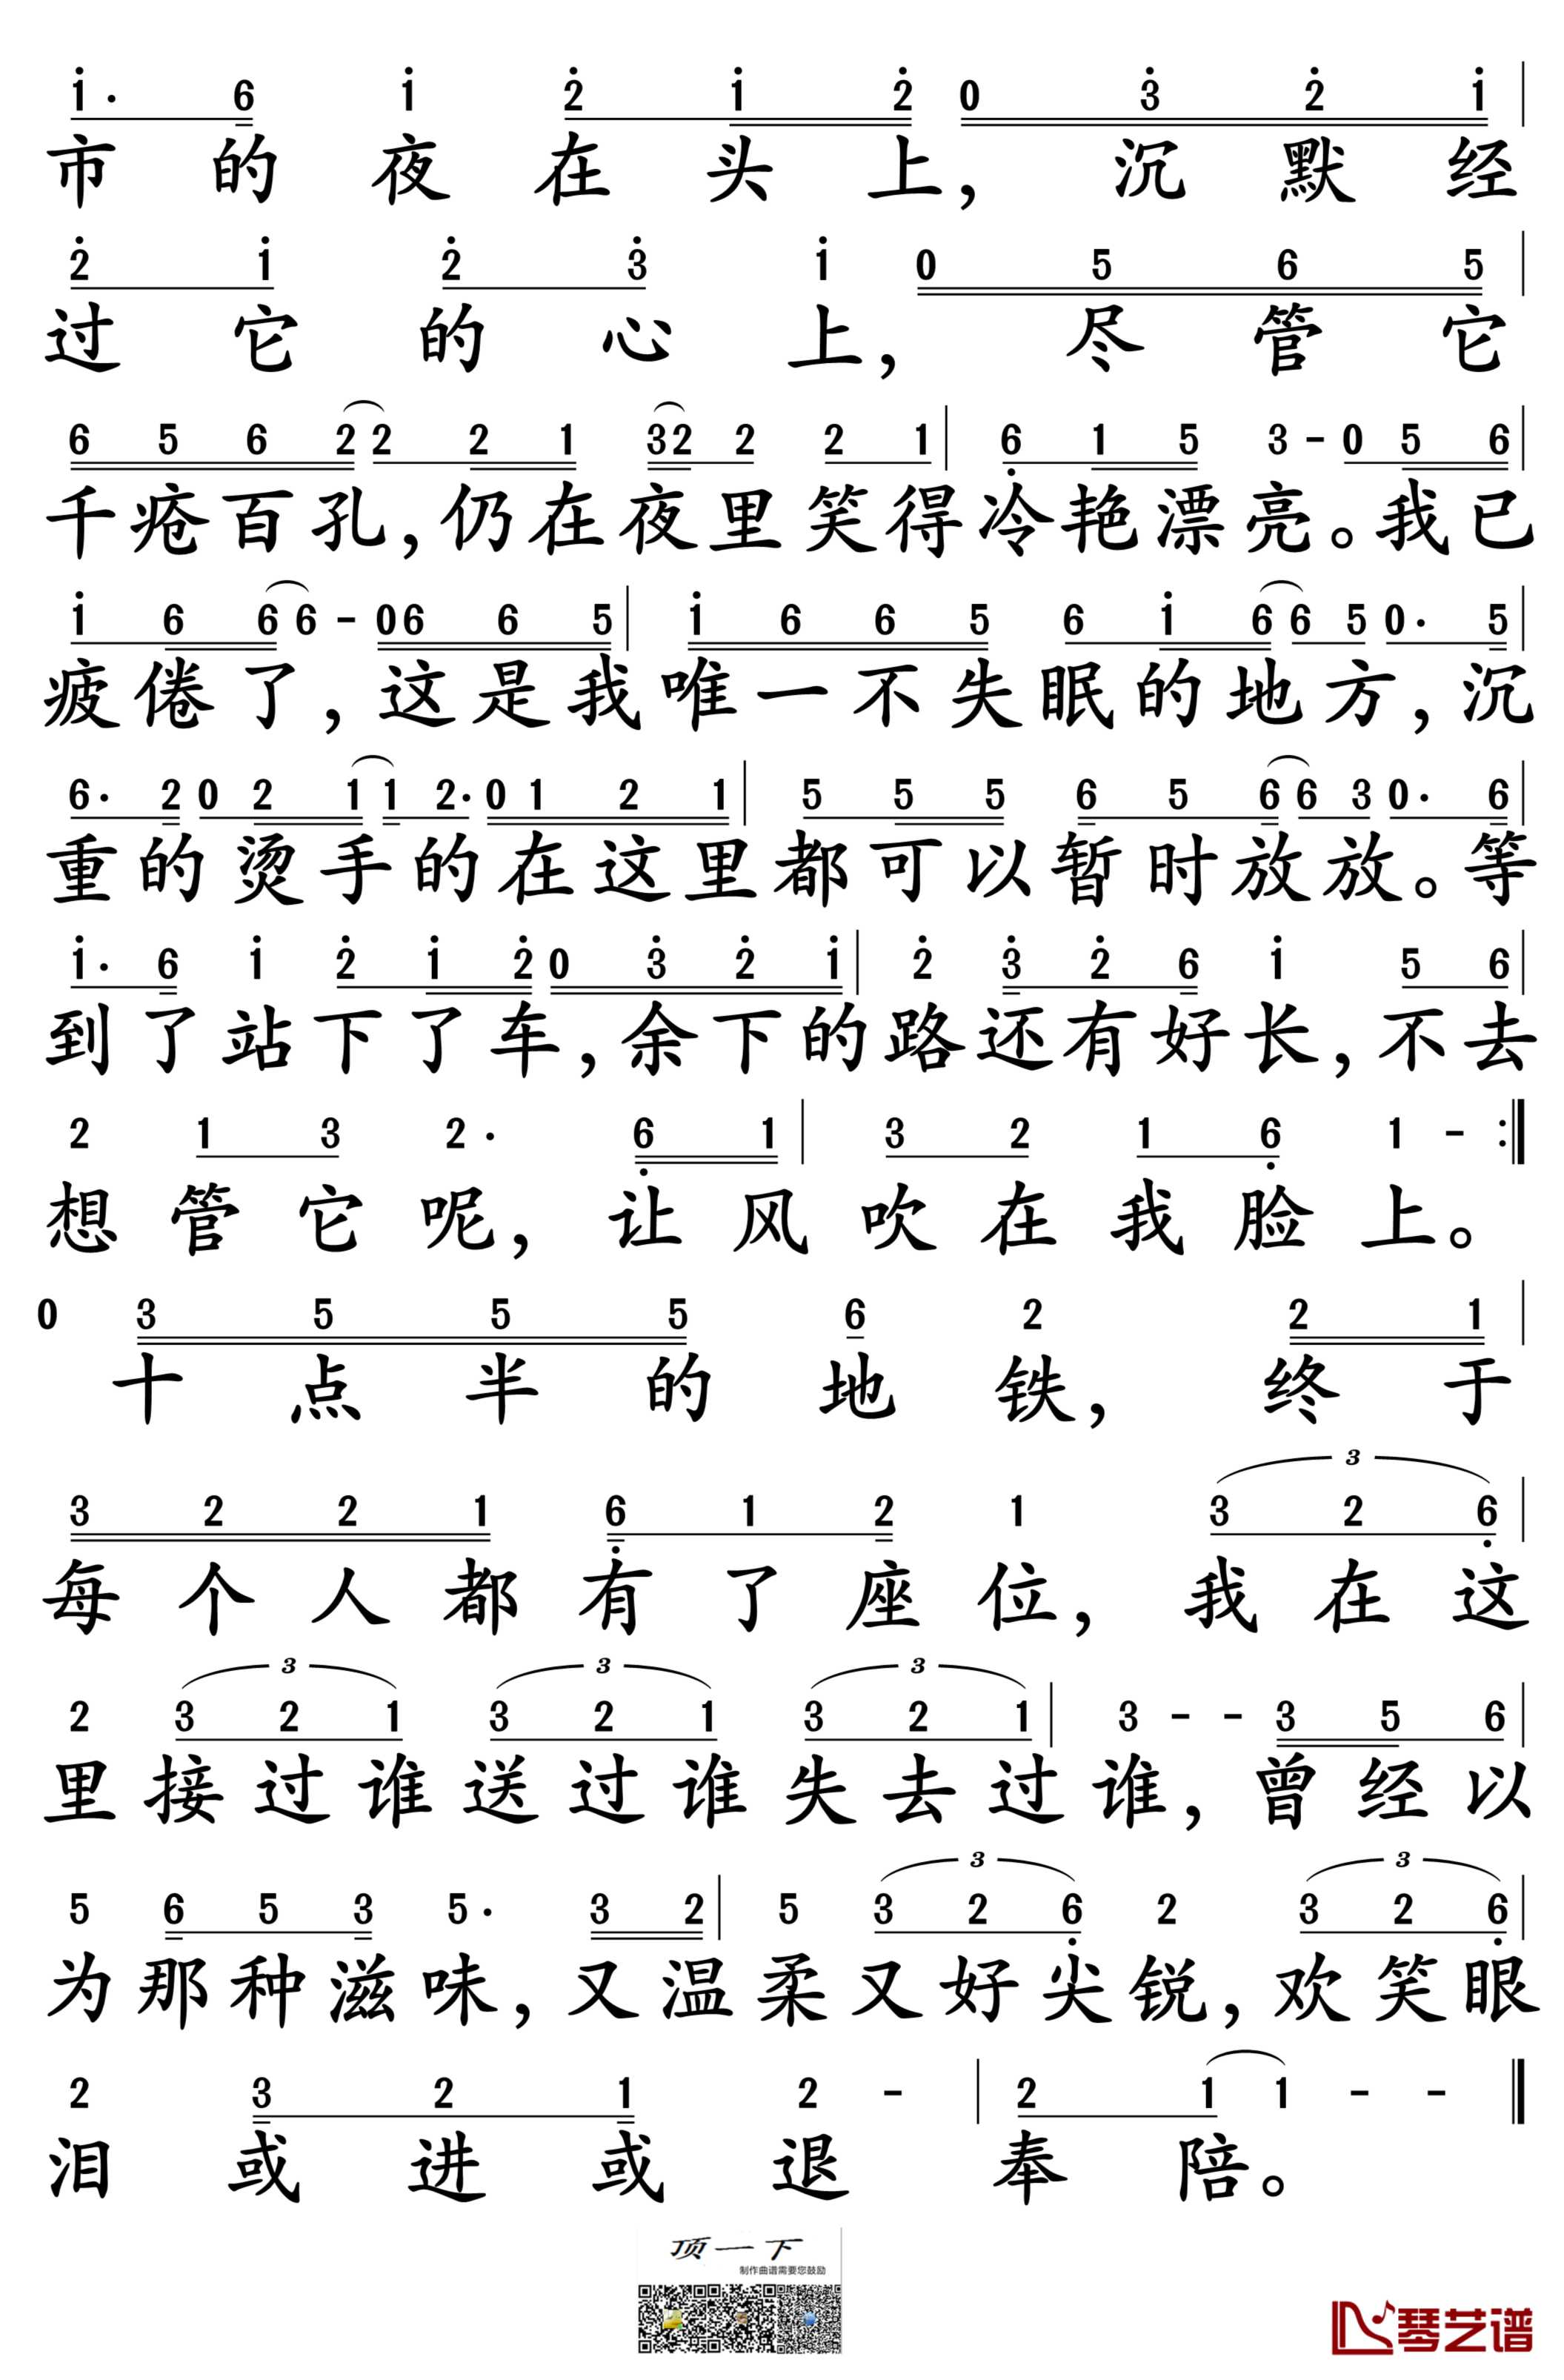 1· 6 1 2 1 2 0 3 2 1
市的夜在头上，沉默经
2 1 2 3 1 0 5 6 5
过它的心上，尽管它
6 5 6 2 2 2 1 32 2 2 1 6 1 5 3 - 0 5 6
千疮百孔，仍在夜里笑得冷艳漂亮。我已
1 6 6 6 - 0 6 6 5 1 6 6 5 6 1 6 6 5 0· 5
疲倦了，这是我唯一不失眠的地方，沉
6· 2 0 2 1 1 2· 0 1 2 1 5 5 5 6 5 6 6 3 0· 6
重的烫手的在这里都可以暂时放放。等
1· 6 1 2 1 2 0 3 2 1 2 3 2 6 1 5 6
到了站下了车，余下的路还有好长，不去
2 1 3 2· 6 1 3 2 1 6 1 -
想管它呢，让风吹在我脸上。
0 3 5 5 5 6 2 2 1
十点半的地铁，终于
3
3 2 2 1 6 1 2 1 3 2 6
每个人都有了座位，我在这
3 3 3
2 3 2 1 3 2 1 3 2 1 3 - - 3 5 6
里接过谁送过谁失去过谁，曾经以
3 3
5 6 5 3 5· 3 2 5 3 2 6 2 3 2 6
为那种滋味，又温柔又好尖锐，欢笑眼
2 3 2 1 2 - 2 1 1 - -
泪或进或退奉陪。
顶一下
制作曲谱需要您鼓励
琴艺谱